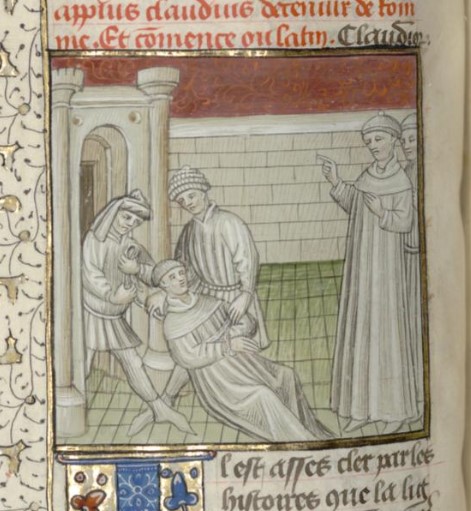 appius claudius decemuir de rom
me. Et comence ou latin. Claudior.
l est asses cler par les
histoires que la lig